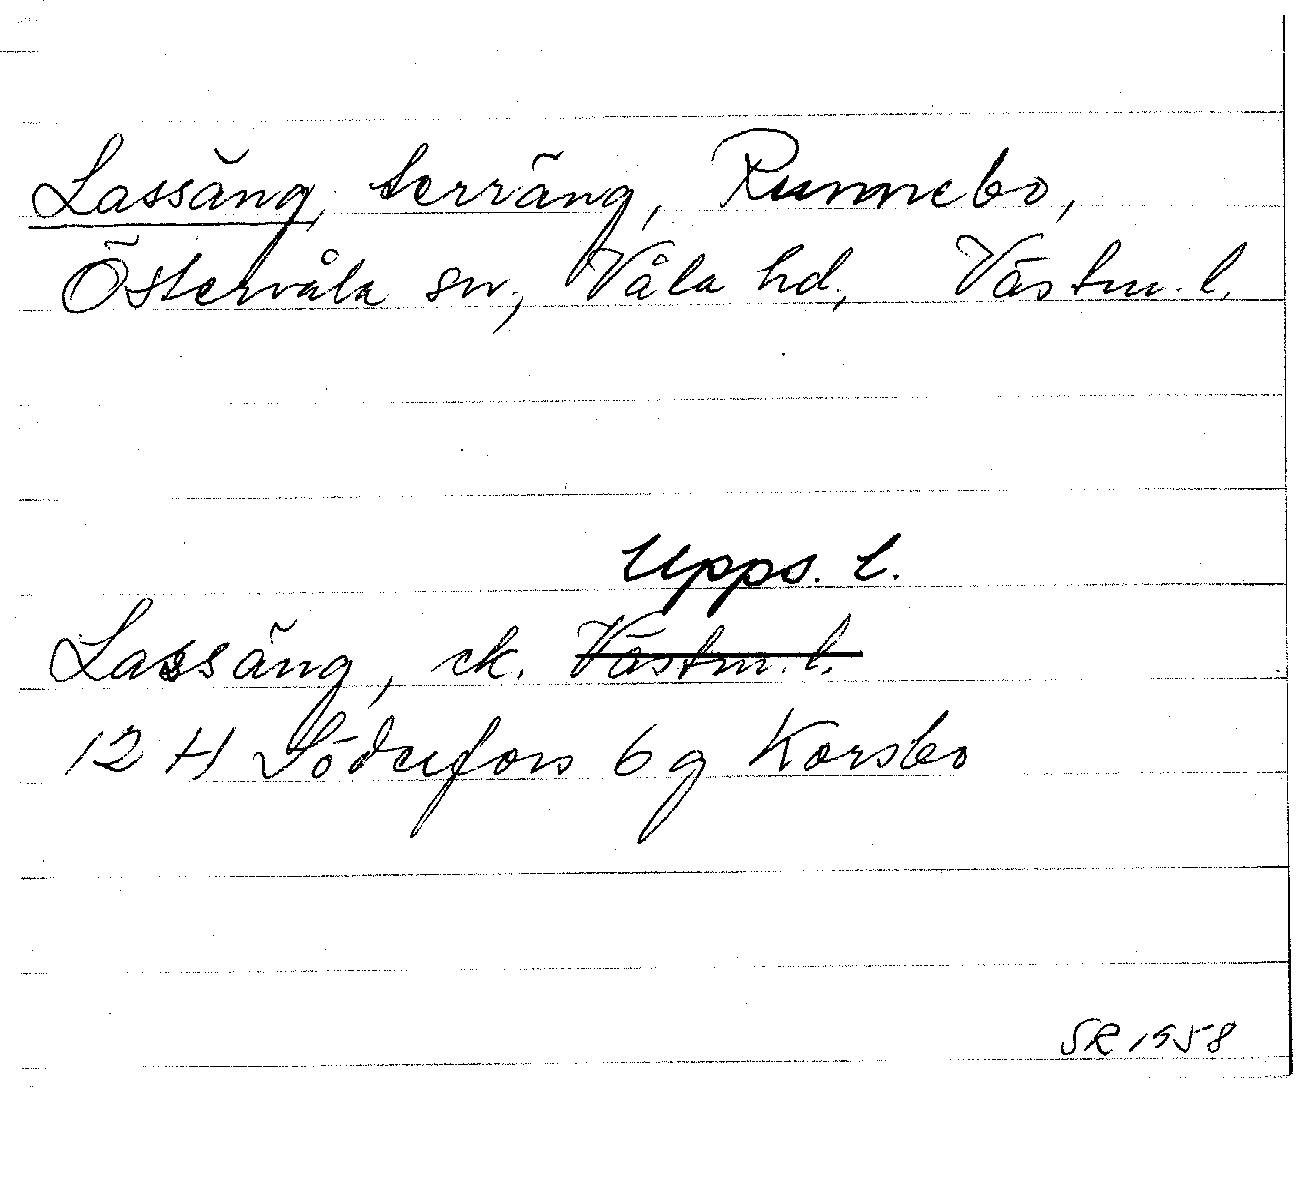 Lassäng, terräng, Runnebo,
Östervåla sn, Våla hd, Västm. l.
Upps. l.
Lassäng, ek. Västm. l.
12 H Söderfors 6 g Korsbo
SR 1958